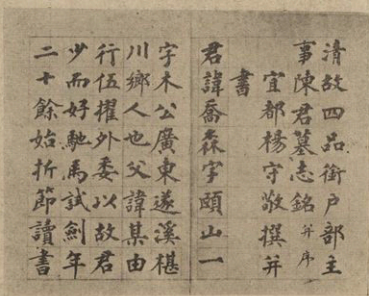 清故四品銜戶部主
事陳君墓志銘并序
宜都楊守敬撰并
書
君諱喬森字頤山一
字木公廣東遂溪椹
川鄉人也父諱某由
行伍擢外委以故君
少而好馳馬試劍年
二十餘始折節讀書